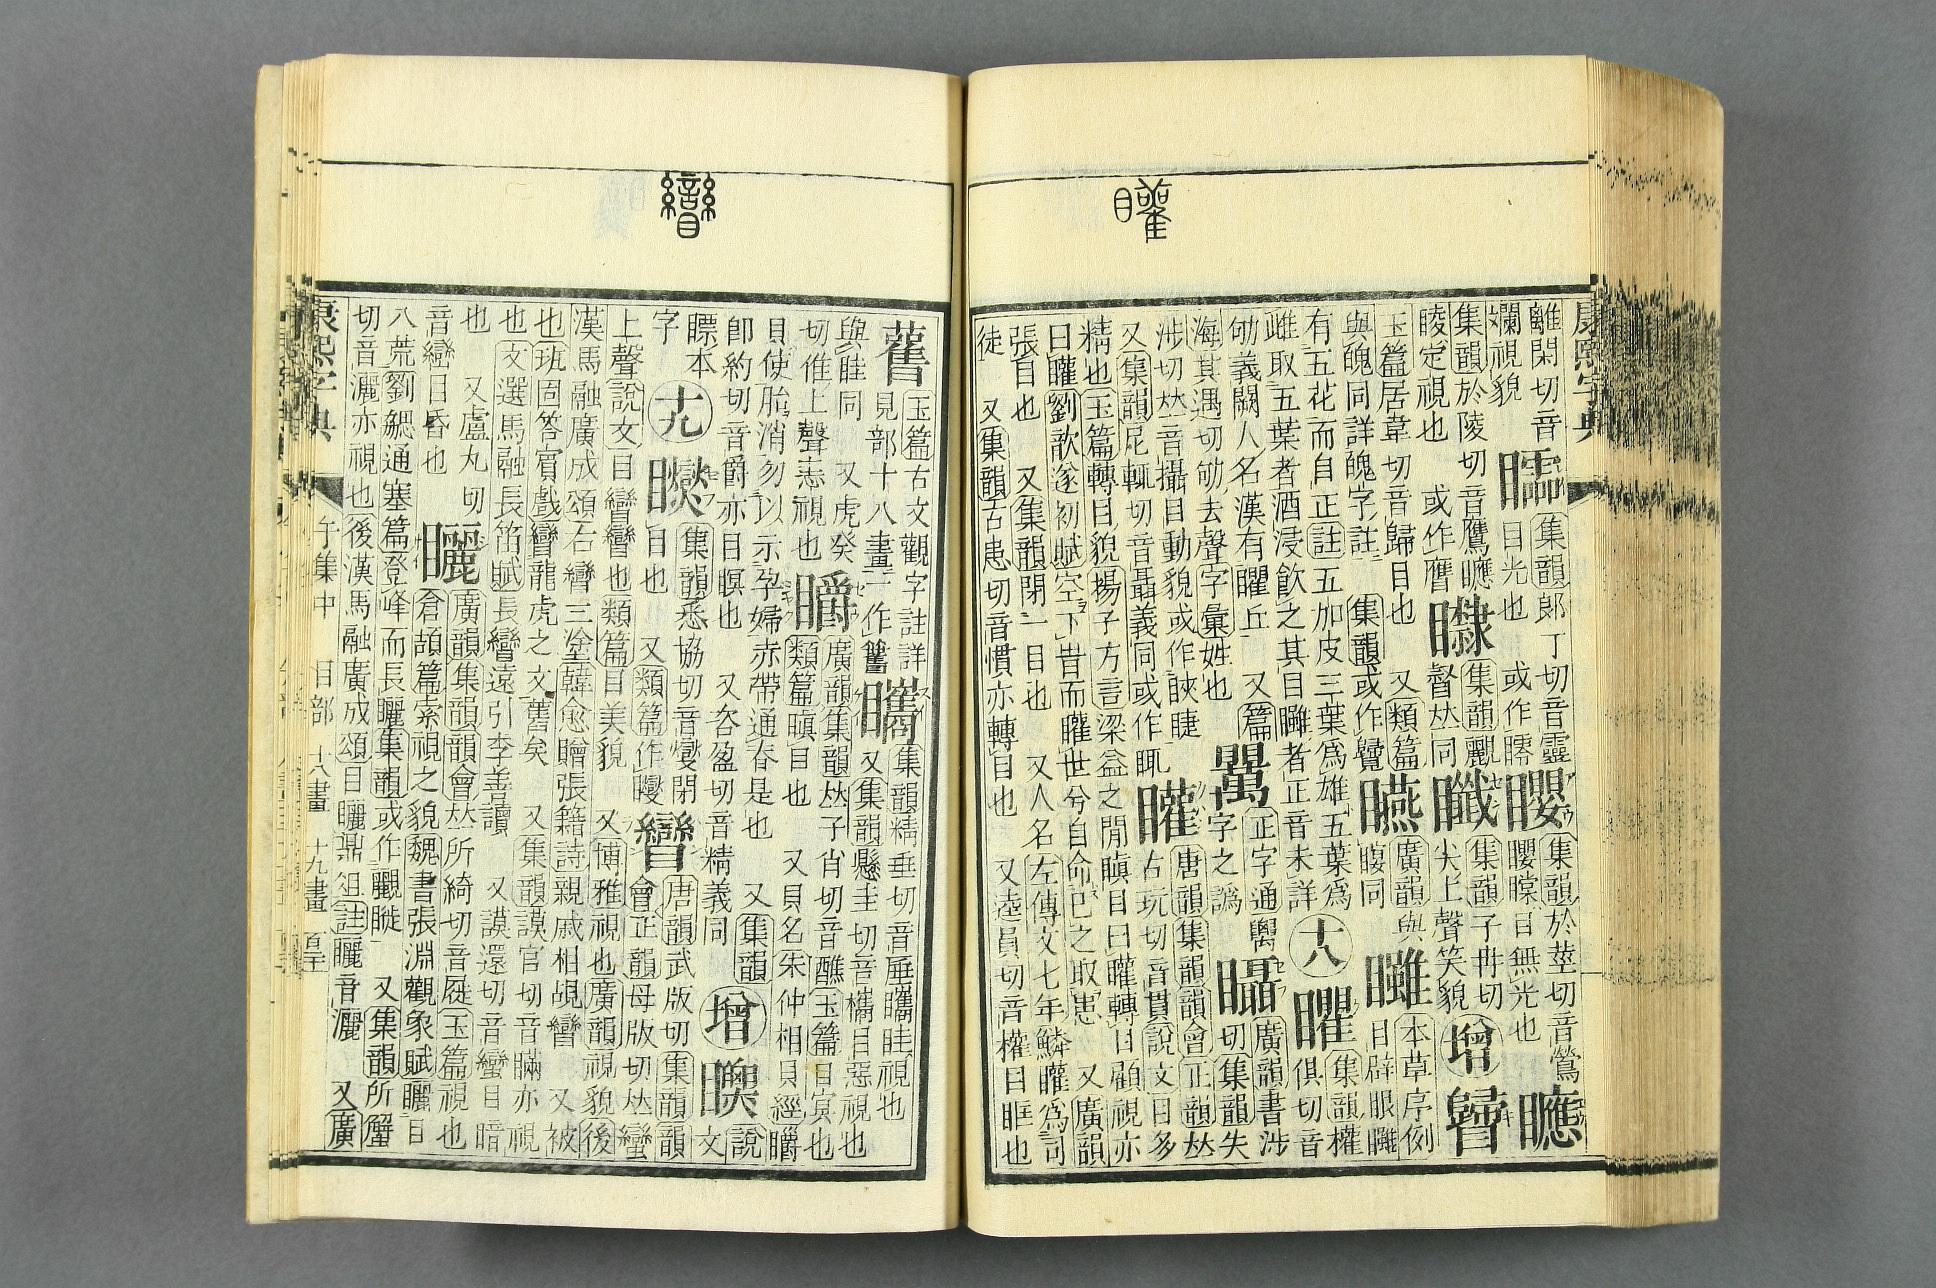 矔
康熙字典
離閑切音
斕視貌
集韻郎丁切音靈
目光也 或作
集韻於莖切音鶯
目無光也
集韻於陵切音鷹
睖定視也 或作
集韻
督
𠀤同
集韻子冉切
尖上聲笑貌
增
玉篇居韋切音歸目也 又類篇
與餽同詳餽字註 集韻或作
廣韻與
同
本草序例
目辟眼
有五花而自正註五加皮三葉爲雄五葉爲
雌取五葉者酒浸飲之其目
者正音未詳
十八
矍
集韻權
俱切音
劬義闕人名漢有矍丘 又篇
海其遇切劬去聲字彙姓也
正字通
字之譌
廣韻書涉
切集韻失
涉切𠀤音攝目動貌或作䀹睫
又集韻尼輒切音聶義同或作
矔
唐韻集韻韻會正韻𠀤
古玩切音貫說文目多
精也玉篇轉目貌揚子方言梁益之閒瞋目曰矔轉目顧視亦
曰矔劉歆遂初賦空下昔而矔世兮自命己之取患 又廣韻
張目也 又集韻閉一目也 又人名左傳文七年鱗矔爲司
徒 又集韻古患切音慣亦轉目也 又逵員切音權目眶也
玉篇古文觀字註詳
見部十八畫一作
集韻精垂切音厜
眭視也
又集韻懸圭切音
目惡視也
與眭同 又虎癸
切倠上聲恚視也
廣韻集韻𠀤子肖切音醮玉篇目冥也
類篇瞋目也 又貝名朱仲相貝經
貝使胎消勿以示孕婦赤帶通脊是也 又集韻
卽約切音爵亦目瞑也 又咨盈切音精義同
增
說
文
瞟本
字
十九
集韻悉協切音燮閉
目也 又類篇作
矕
唐韻武版切集韻韻
會正韻母版切𠀤蠻
上聲說文目矕矕也類篇目美貌 又博雅視也廣韻視貌後
漢馬融廣成頌右矕三塗韓愈贈張籍詩親戚相覘矕 又被
也班固答賓戲矕龍虎之文舊矣 又集韻謨官切音瞞亦視
也文選馬融長笛賦長矕遠引李善讀 又謨還切音蠻目暗
也 又盧丸切
音巒目昏也
矖
廣韻集韻韻會𠀤所綺切音屣玉篇視也
倉頡篇索視之貌魏書張淵觀象賦矖目
八荒劉勰通塞篇登峰而長矖集韻或作
又集韻所蟹
切音灑亦視也後漢馬融廣成頌目矖鼎俎註矖音灑 又廣
康熙字典
午集中 目部 十八畫 十九畫
矕